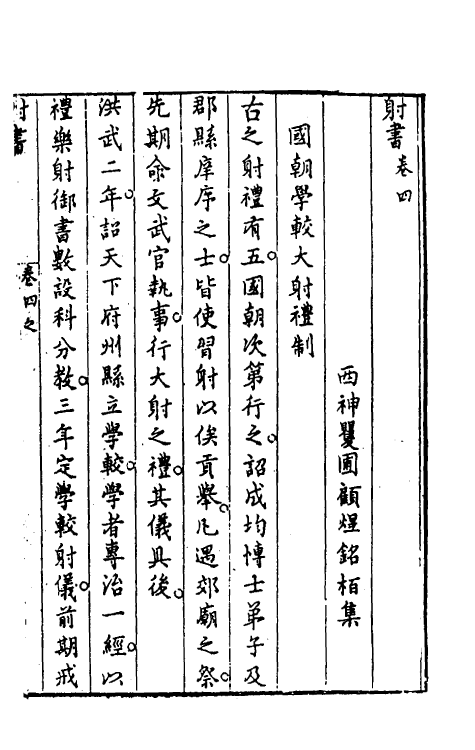 射書卷四
西神矍圃顧煜銘栢集
國朝學較大射禮制
古之射禮有五。國朝次第行之。詔成均博士弟子及
郡縣庠序之士。皆使習射以俟貢舉。凡遇郊廟之祭。
先期命文武官執事。行大射之禮。其儀具後。
洪武二年。詔天下府州縣立學較。學者專治一經。以
禮樂射御書數設科分教。三年定學較射儀。前期戒
射書 卷四之